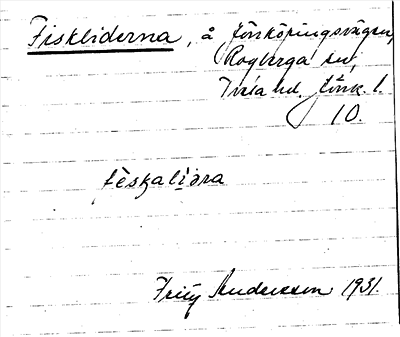 Fiskliderna, å Jönköpingsvägen,
Rogberga sn,
Tveta hd. Jönk. l.
10.
fèskalìɔra
Fritz Andersson 1931.